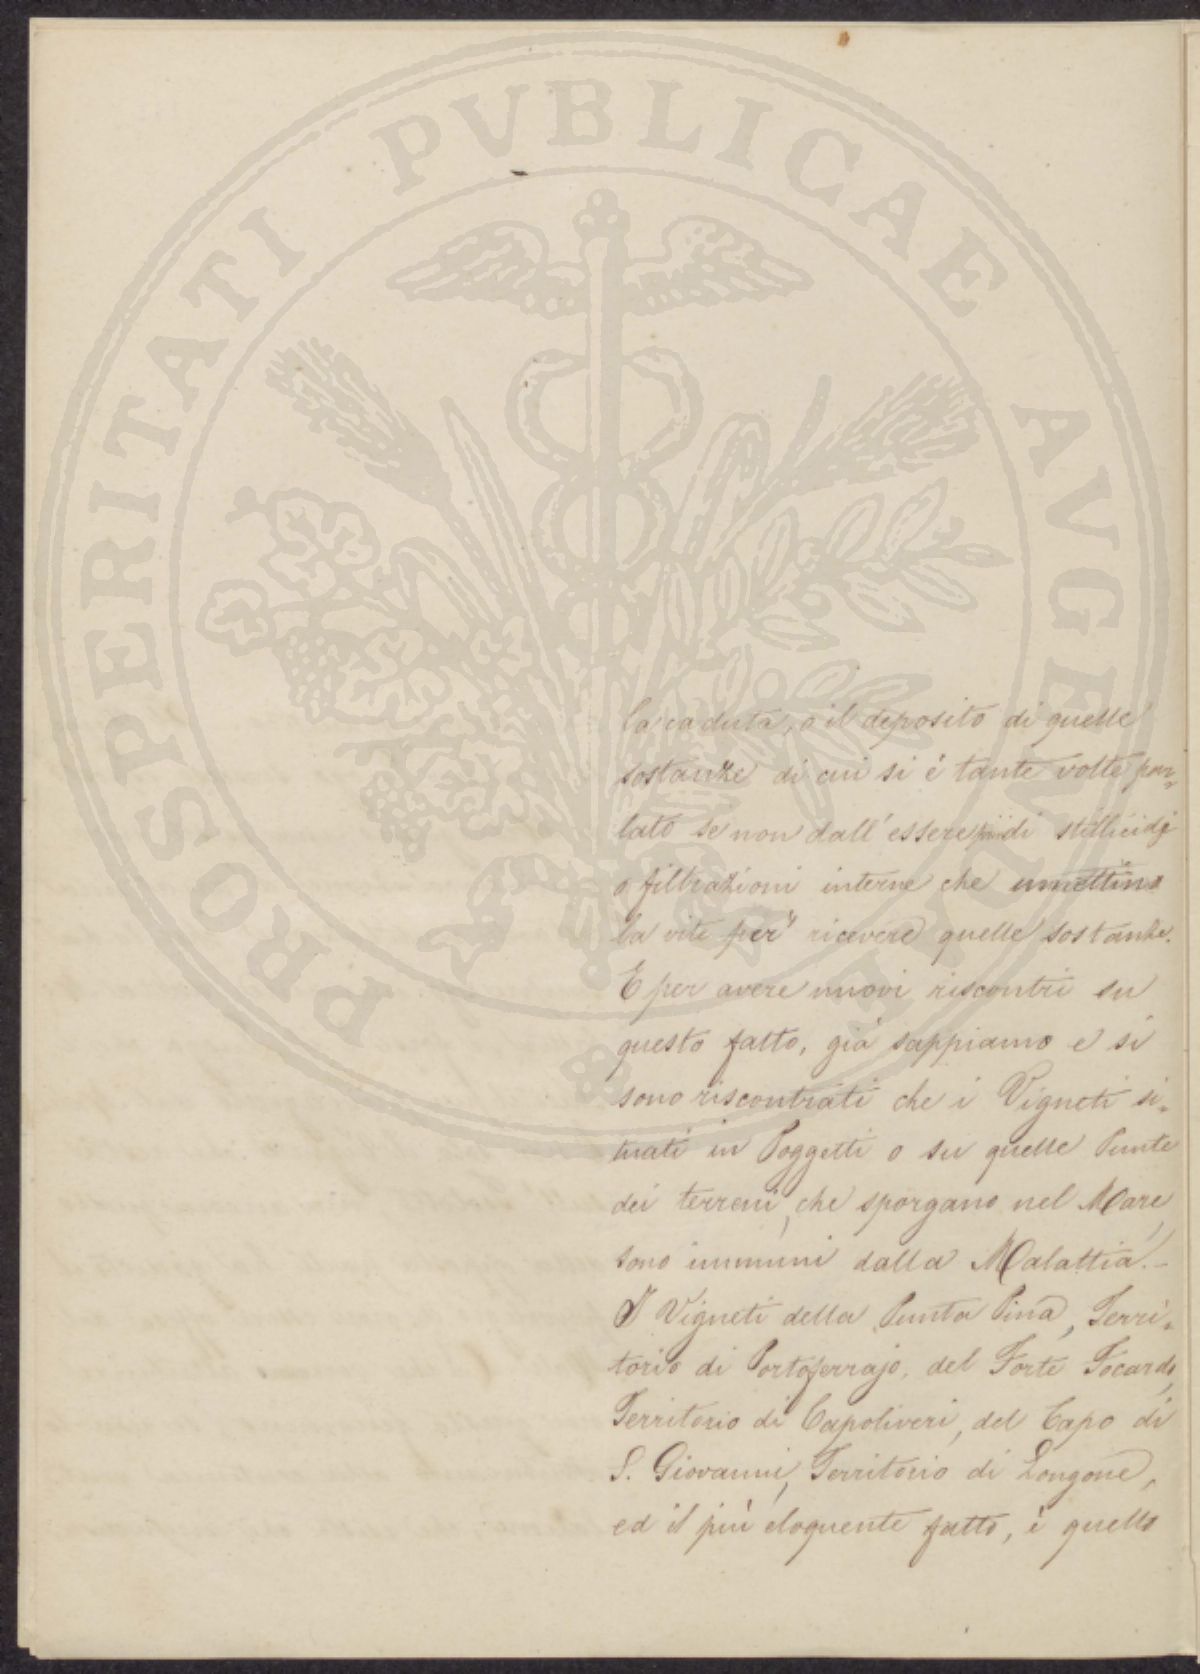 PROSPERITATI PVBLICAE AVGENDAE
la caduta, o il deposito di quelle
sostanze di cui si è tante volte par=
lato se non dall'essere più di stillicidj
o filtrazioni interne che umettino
la vite per ricevere quelle sostanze.
E per avere nuovi riscontri su
questo fatto, già sappiamo e si
sono riscontrati che i Vigneti si=
tuati in Poggetti o su quelle Punte
dei terreni, che sporgano nel Mare,
sono immuni dalla Malattia. -
I Vigneti della Punta Pina, Terri=
torio di Portoferrajo, del Forte Focardo,
Territorio di Capoliveri, del Capo di
S. Giovanni, Territorio di Longone,
ed il più eloquente fatto, è quello